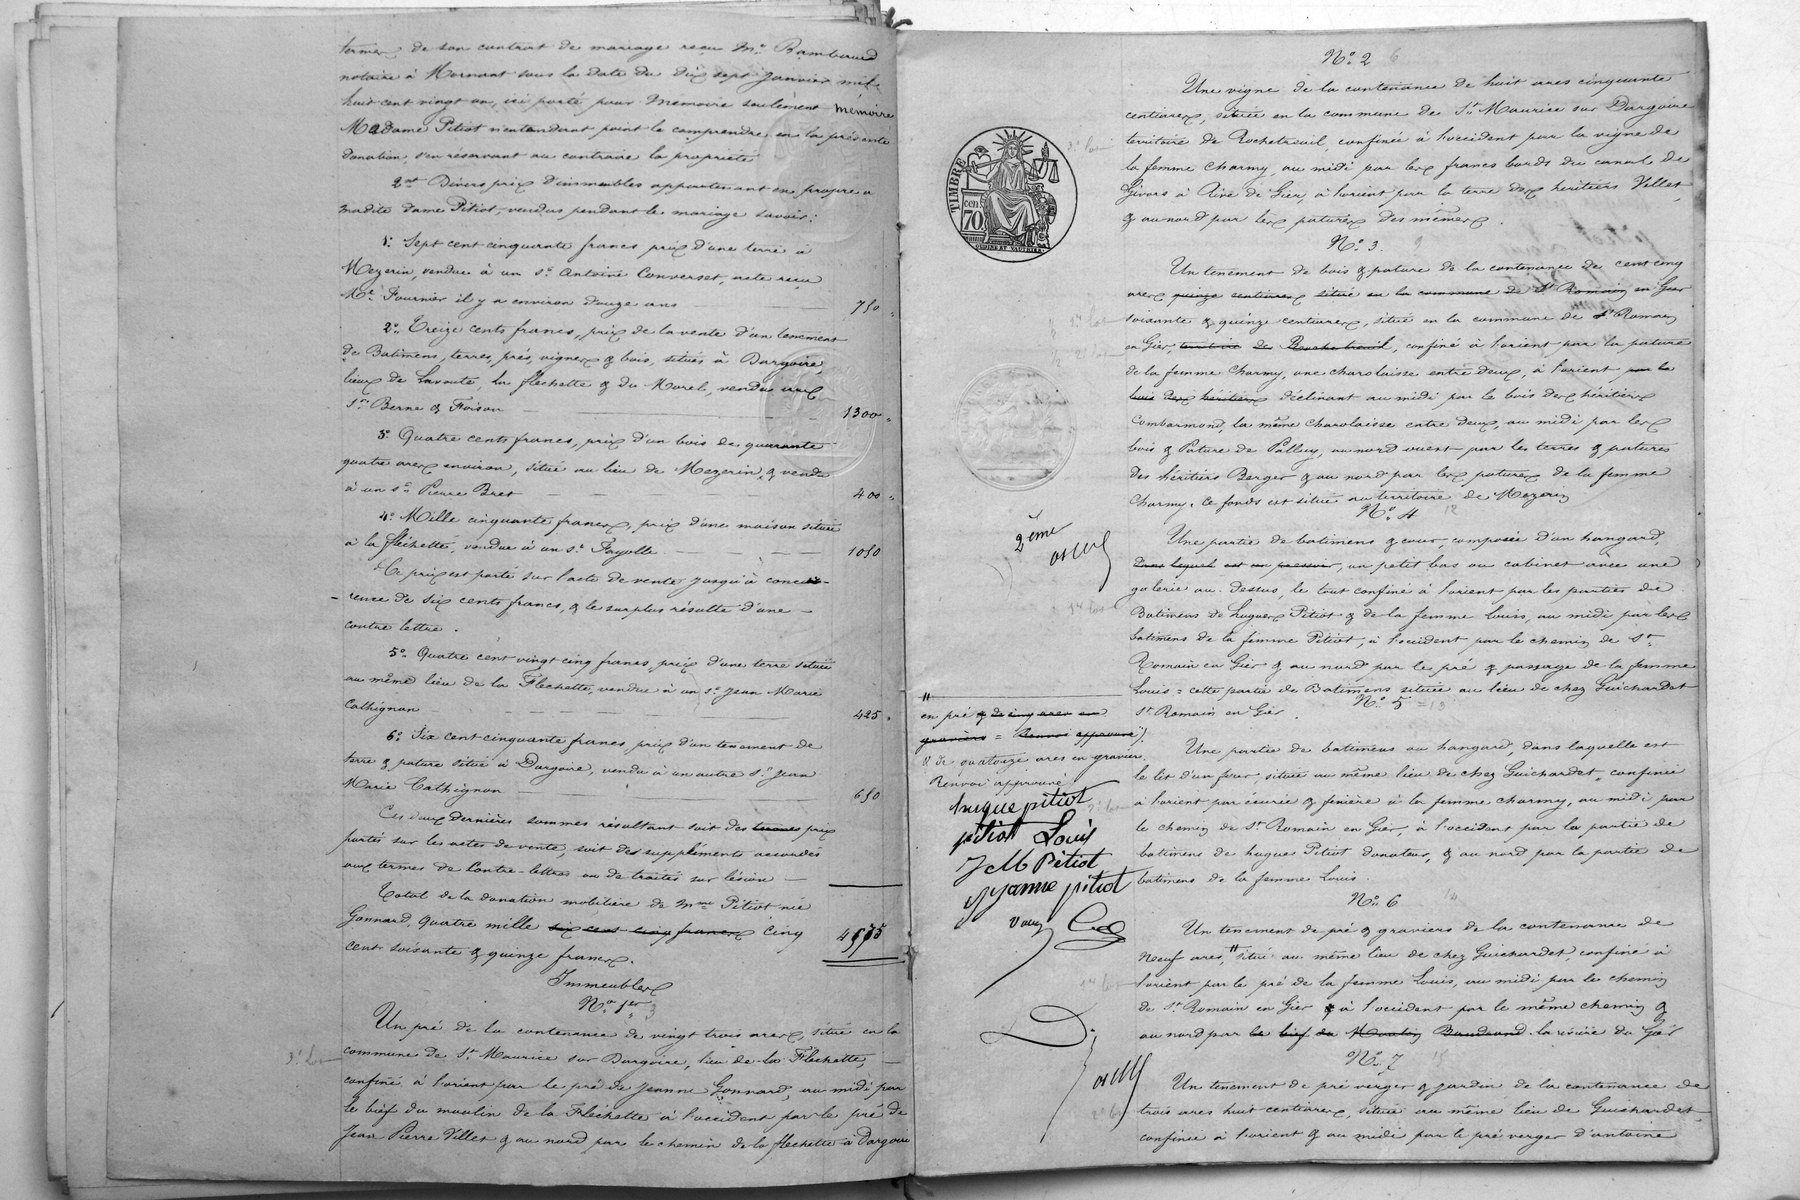 termes de son contrat de mariage reçu Me. Rambaud
notaire à Mornant sous la date du dix sept janvier mil
huit cent vingt un, ici porté pour Mémoire seulement mémoire
Madame Pitiot n'entendant point le comprendre en la présente
donation, s'en réservant au contraire la propriété
2ent Divers prix d'immeubles appartenant en propre a
madite dame Pitiot, vendus pendant le mariage savoir:
1: Sept cent cinquante francs prix d'une terre à
Mezerin, vendue à un Sr. Antoine Converset, acte reçu
Me. Fournier il y a environ douze ans 750 "
2o. Treize cents francs, prix de la vente d'un tenement
de Batimens, terres, prés, vignes & bois, situés à Dargoire,
lieux de Lavoute, la fléchette & du Morel, vendus aux
Srs Berne & Foison 1300 "
3o Quatre cents francs, prix d'un bois de quarante
quatre ares environ, situé au lieu de Mezerin & vendu
à un Sr. Pierre Bret 400 "
4o Mille cinquante francs, prix d'une maison située
à la fléchette, vendue à un Sr. Fayolle 1050
Ce prix est porté sur l'acte de vente jusqu'à concur-
-rence de six cents francs, & le surplus résulte d'une
contre lettre.
5o. Quatre cent vingt cinq francs, prix d'une terre située
au même lieu de la Flechette, vendue à un Sr. Jean Marie
Cathignon 425 "
6o. Six cent cinquante francs, prix d'un tenement de
terre & pature situé à Dargoire, vendu à un autre Sr. Jean
Marie Cathignon 650
Ces deux dernières sommes résultant soit des termes prix
portés sur les actes de vente, soit des suppléments accordés
aux termes de Contre-lettres ou de traités sur lésion
Total de la donation mobilière de Mme Pitiot née
Gonnard, quatre mille six cent cinq francs cinq 4575
cent soixante & quinze francs.
Immeubles
No. 1er. 3
Un pré de la contenance de vingt trois ares, situé en la
3e lot commune de St. Maurice sur Dargoire, lieu de la Fléchette,
confiné à l'orient par le pré de Jeanne Gonnard, au midi par
le bief du moulin de la Fléchette à l'occident par le pré de
Jean Pierre Villet & au nord par le chemin de la flechette à Dargoire
No. 2 6
Une vigne de la contenance de huit ares cinquante
centiares, située en la commune de St. Maurice sur Dargoire
territoire de Rochetreuil, confinée à l'occident par la vigne de
la femme Charmy, au midi par les francs bords du canal de
Givors à Rive de Gier, à l'orient par la terre des héritiers Villet,
& au nord par les patures des mêmes.
TIMBRE
70 cen
No. 3. 9
Un tenement de bois & pature de la contenance de cent cinq
ares quinze centiares situé en la commune de St Romain en Gier
soixante & quinze centiares, situé en la commune de St Romain
en Gier, territoire de Rochetreuil, confiné à l'orient par la pature
de la femme Charmy, une charolaisse entre deux, à l'orient par le
bois des héritiers déclinant au midi par le bois des héritiers
Combarmond, la même charolaisse entre deux, au midi par les
bois & Pature de Palluy, au nord ouest par les terres & patures
des héritiers Berger & au nord par les patures de la femme
Charmy. Ce fonds est situé au territoire de Mezerin
No. 4 12
2ème
Une partie de batimens & cour, composée d'un hangard,
dans lequel est un pressoir, un petit bas ou cabinet avec une
galerie au-dessus, le tout confiné à l'orient par les parties de
Batimens de hugues Pitiot & de la femme Louis, au midi par les
batimens de la femme Pitiot, à l'occident par le chemin de St.
Romain en Gier & au nord par le pré & passage de la femme
Louis = cette partie de Batimens située au lieu de chez Guichardet
St. Romain en Gier.
No. 5 = 13
Une partie de batimens ou hangard, dans laquelle est
le lit d'un four, située au même lieu de chez Guichardet, confinée
à l'orient par écurie & fenière à la femme charmy, au midi par
le chemin de St. Romain en Gier, à l'occident par la partie de
batimens de hugues Pitiot donateur, & au nord par la partie de
batimens de la femme Louis.
"
en pré & de cinq ares en
graviers = Renvoi approuvé).
& de quatorze ares en graviers
Renvoi approuvé
hugue pitiot
pitiot Louis
J M Pitiot
jeanne pitiot
No. 6 14
Un tenement de pré & graviers de la contenance de
neuf ares," situé au même lieu de chez Guichardet confiné à
l'orient par le pré de la femme Louis, au midi par le chemin
de St. Romain en Gier & à l'occident par le même chemin &
au nord par le bief du Moulin Baudrand. la rivière du Gier
No. 7 15
Un tenement de pré verger & jardin de la contenance de
trois ares huit centiares, située au même lieu de Guichardet
confinée à l'orient & au midi par le pré verger d'antoine